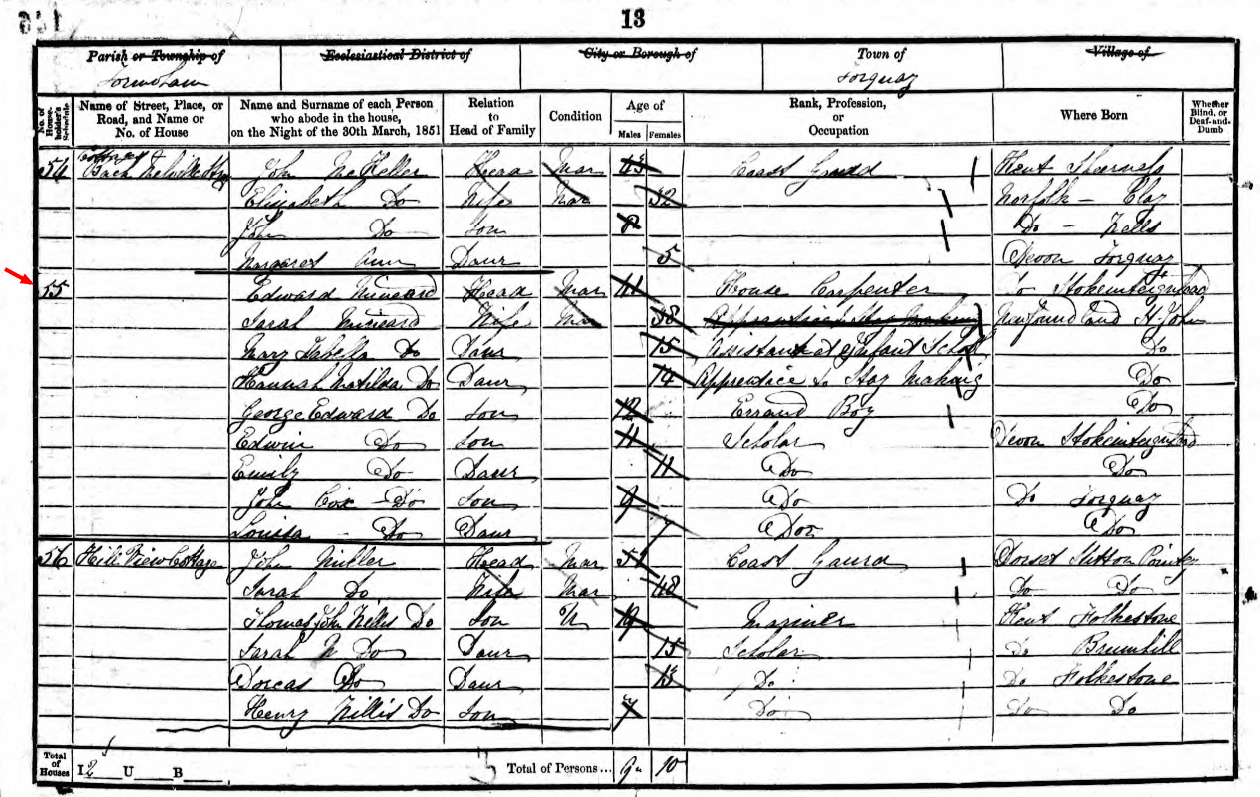 13
Parish or Township of Ecclesiastical District of City or Borough of Town of Village of
Tormoham Torquay
No. of House-holder's Schedule Name of Street, Place, or Road, and Name or No. of House Name and Surname of each Person who abode in the house, on the Night of the 30th March, 1851 Relation to Head of Family Condition Age of Males Females Rank, Profession, or Occupation Where Born Whether Blind, or Deaf-and-Dumb
54 Back Melville St John McKeller Head Mar 43 Coast Guard Kent Sheerness
Elizabeth Do Wife Mar 32 Norfolk - Clay
John Do Son 8 Do - Wells
Margaret Ann Daur 5 Devon Torquay
55 Edward Mineard Head Mar 41 House Carpenter Do Stokeinteignhead
Sarah Mineard Wife Mar 38 Apprentice Stay Making Newfoundland St John
Mary Isabella Do Daur 15 Assistant at Infant School Do
Hannah Matilda Do Daur 14 Apprentice to Stay Making Do
George Edward Do Son 12 Errand Boy Do
Edwin Do Son 11 Scholar Devon Stokeinteignhead
Emily Do Daur 11 Do Do
John Cox Do Son 9 Do Do Torquay
Louisa Do Daur 7 Do Do
56 Hill View Cottage John Miller Head Mar 51 Coast Gaurd Dorset Sutton
Sarah Do Wife Mar 48 Do Do
Thomas John Do Son U 19 Mariner Kent Folkestone
Sarah Do Daur 15 Scholar Do
Dorcas Do Daur 13 Do Do Folkestone
Henry Willis Do Son 7 Do Do Do
Total of Houses I 2 U B Total of Persons... 9 10